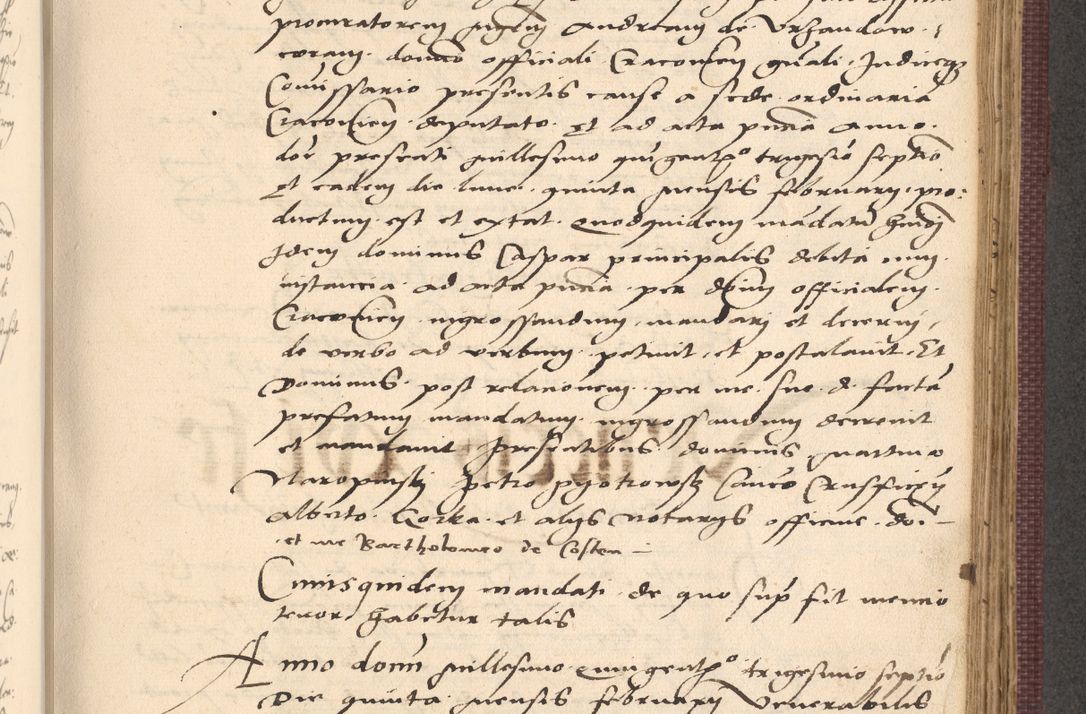 procuratorem Andream de Vrzandow
coram domino officiali Cracovien gnali Judiceq
Comissario presentis cause a sede ordinaria
Cracovien deputato et ad acta pntia anno
dni presenti millesimo quigentmo trigesio septio
et eadem die lune quinta mensis februarij pro:
ductum est et extat Quodquidem mandatu
Idem dominus Caspar principalis debita cum
instancia ad acta pntia per dnum officialem
Cracovien ingrossandum mandari et decerni
de verbo ad verbum petivit et postulavit Et
Dominus post relacionem per me sue d facta
prefatum mandatum ingrossandum decrevit
et mandavit presentibus dominis Martino
Naropinsky Petro Pyotrowsky
Alberto Gorka et alijs Notarijs officine doi
et me Bartholomeo de Costen
Cuiusquidem mandati de quo sup fit mencio
tenor habetur talis
Anno domi millesimo quingentmo trigesimo septio
Die quinta mensis februarij Venerabilis